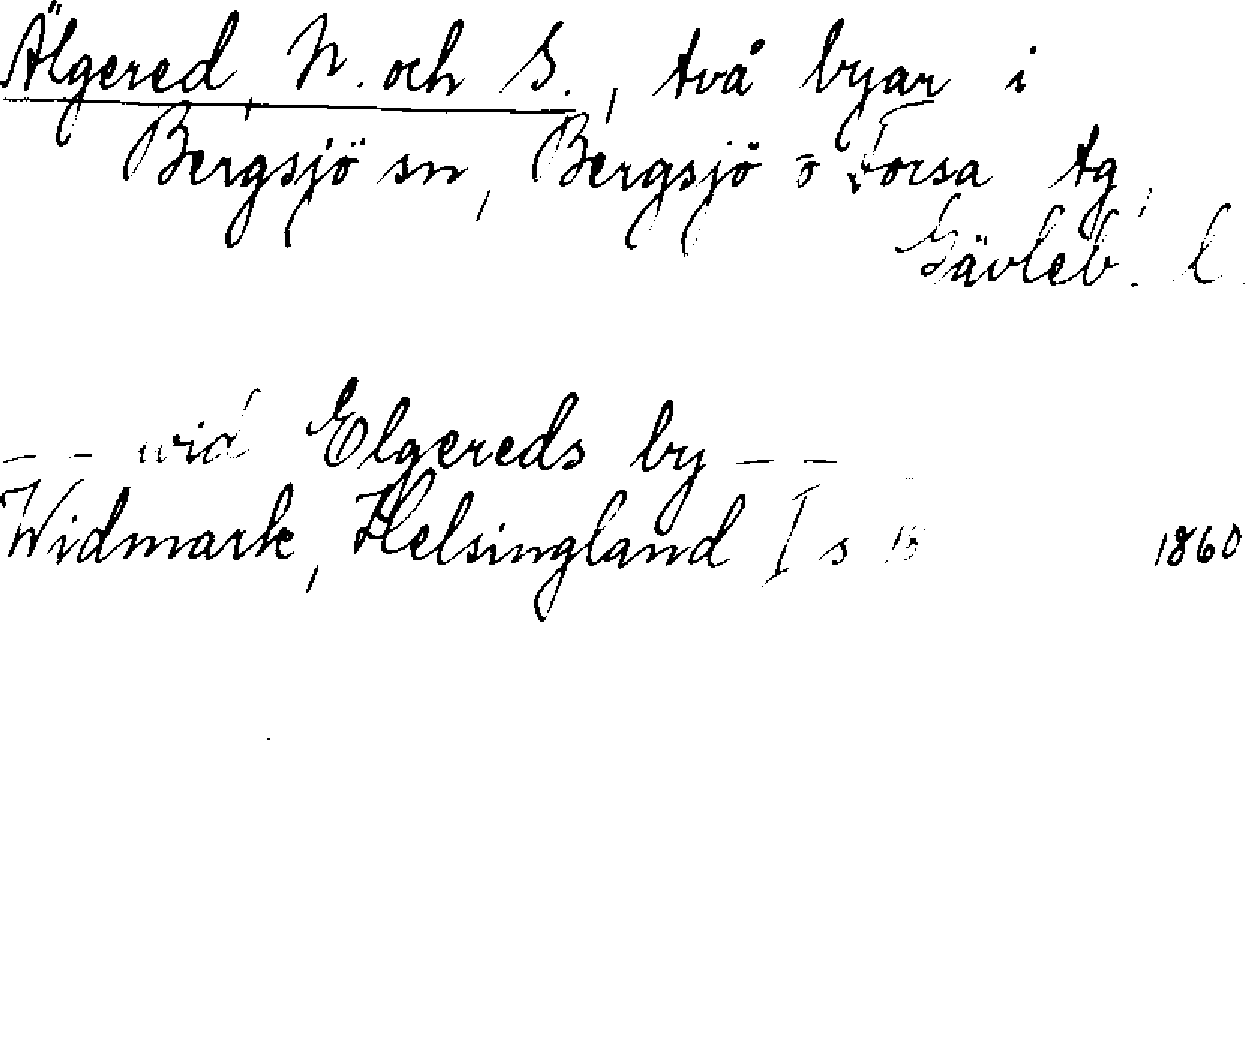 Älgered, N. och S., två byar i
Bergsjö sn, Bergsjö o Forsa tg,
Gävleb. l.
– – wid Elgereds by – –
Widmark, Helsingland I s 1860